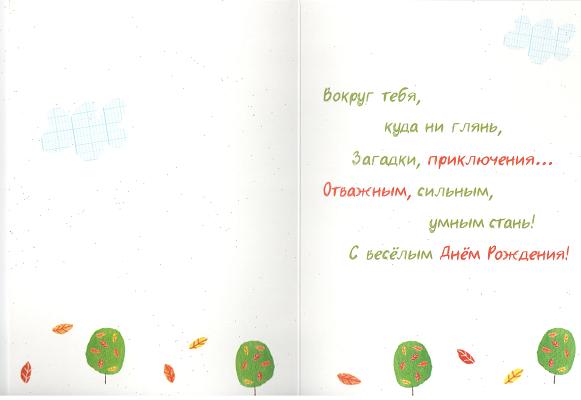 Вокруг тебя,
куда ни глянь,
Загадки, приключения...
Отважным, сильным,
умным стань!
С весёлым Днём Рождения!